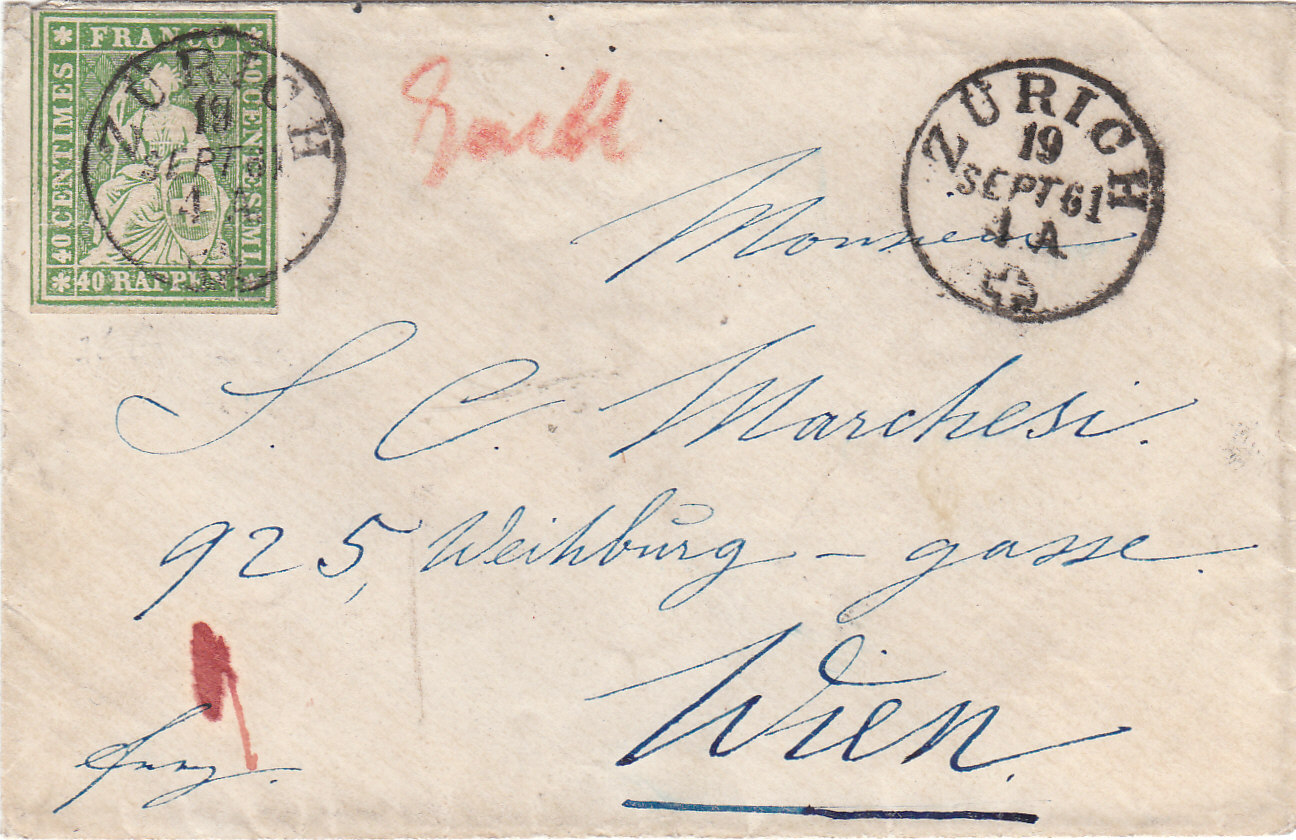 FRANCO
40 CENTIMES
40 CENTESIMI
40 RAPPEN
ZÜRICH
19
SEPT 61
1 A
ZÜRICH
19
SEPT 61
1 A
S. C. Marchesi.
925, Weihburg-gasse.
Wien.